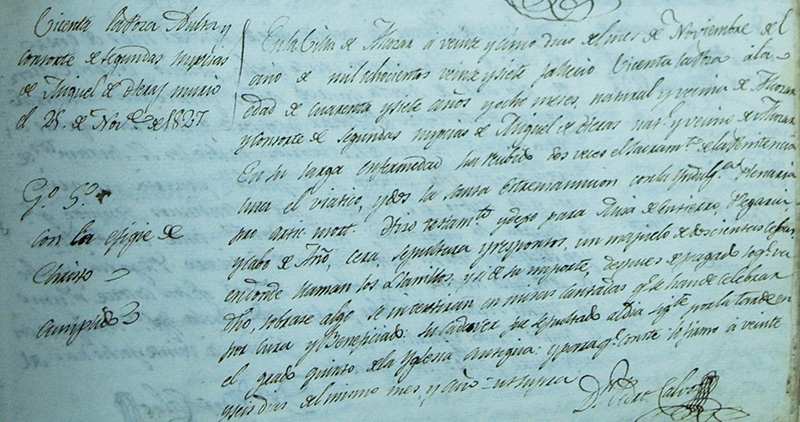 Vicenta Lapoza Adulta y
consorte de segundas nupcias
de Miguel de Heras murio
el 25 de Nov.e de 1827
G.o 5.o
con la efigie de
Christo
Cumplido 3
En la Villa de Alozar a veinte y cinco dias del mes de Noviembre del
año de mil ochocientos veinte y siete falleció Vicenta Lapoza a la
edad de cuarenta y siete años y ocho meses, natural y vecina de
y consorte de segundas nupcias de Miguel de Heras nat.l y vecino de
En su larga enfermedad ha recibido dos veces el sacram.to de la Penitencia
una el viatico, y dos la Santa Extremauncion con la Yndulg.a Plenaria
pro artic. mort. Hizo testam.to y dejó para Misa de entierro, Plegaria
y cabo de Año, cera, sepultura y responsos, un majuelo de doscientas cepas
en donde llaman los Llanillos, y si de su importe, despues de pagado lo q.e va
dho, sobrase algo, se invertiran en misas cantadas q.e se han de celebrar
por cura y Beneficiado: su cadaver fue sepultado al dia sig.te por la tarde en
el grado quinto de la Yglesia antigua: y para q.e conste lo firmo a veinte
y seis dias del mismo mes, y año ut supra.
D.n Pedro Calvo